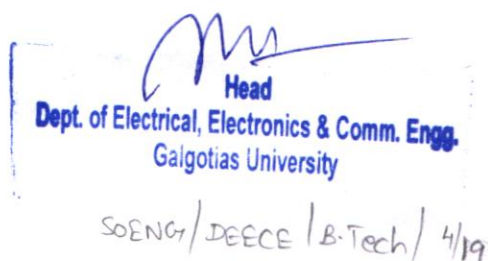 Head
Dept. of Electrical, Electronics & Comm. Engg.
Galgotias University
SOENG/DEECE/B.Tech/4/19